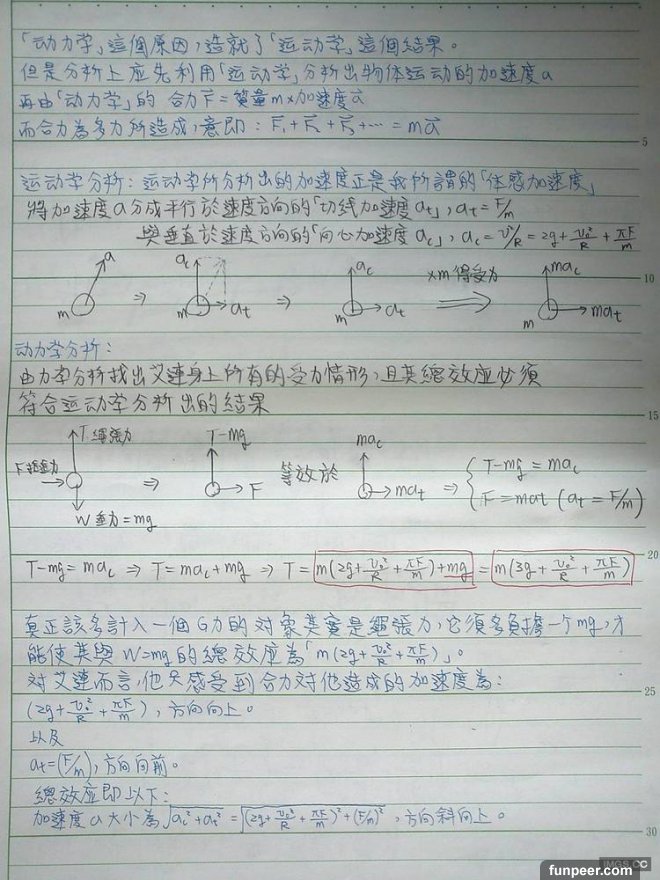 「动力学」這個原因,造就了「运动学」這個結果。
但是分析上应先利用「运动学」分析出物体运动的加速度a
再由「动力学」的 合力F⃗ = 質量m×加速度a⃗
而合力為多力所造成,意即: F⃗₁+F⃗₂+F⃗₃+⋯ = ma⃗
5
运动学分析: 运动学所分析出的加速度正是我所謂的「体感加速度」
將加速度a分成平行於速度方向的「切线加速度at」, at = F/m
與垂直於速度方向的「向心加速度ac」, ac = v²/R = 2g + v₀²/R + πF/m
10
a m ⇒ ac at m ⇒ ac at m ×m 得受力 ⇒ mac mat m
动力学分析:
由力学分析找出艾連身上所有的受力情形,且其總效应必須
符合运动学分析出的結果
15
T 繩張力 T-mg mac
F 推動力 ⇒ F 等效於 mat ⇒ { T-mg = mac
F = mat (at = F/m)
W 重力 = mg
20
T-mg = mac ⇒ T = mac+mg ⇒ T = m(2g + v₀²/R + πF/m)+mg = m(3g + v₀²/R + πF/m)
真正該多計入一個G力的对象其實是繩張力,它須多負擔一个mg,才
能使其與W=mg的總效应為「m(2g + v₀²/R + πF/m)」。
对艾連而言,他只感受到合力对他造成的加速度為:
25
(2g + v₀²/R + πF/m), 方向向上。
以及
at = (F/m), 方向向前。
總效应即以下:
加速度a大小為√(ac²+at²) = √((2g + v₀²/R + πF/m)² + (F/m)²) , 方向斜向上。
30
IMGS.CC
funpeer.com